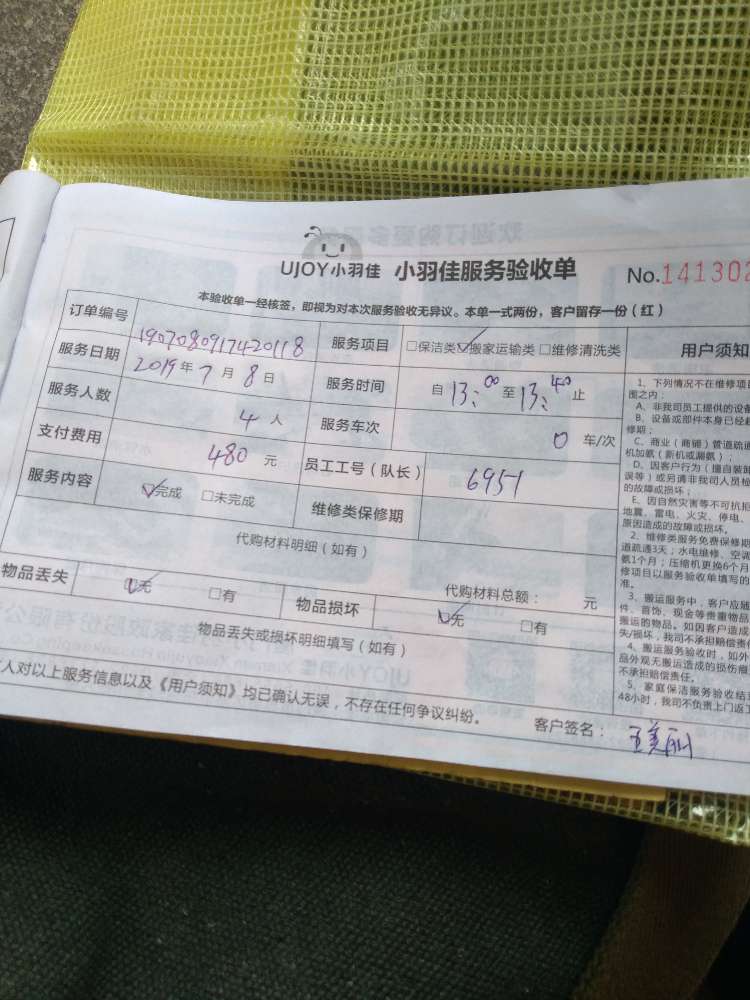 UJOY小羽佳 小羽佳服务验收单 No.141302
本验收单一经核签，即视为对本次服务验收无异议。本单一式两份，客户留存一份（红）
订单编号 1907080917420118 服务项目 □保洁类☑搬家运输类 □维修清洗类
服务日期 2019年7月8日 服务时间 自13:00至13:40止
服务人数 4人 服务车次 0车/次
支付费用 480元 员工工号（队长） 6951
服务内容 ☑完成 □未完成 维修类保修期
代购材料明细（如有）
代购材料总额： 元
物品丢失 ☑无 □有 物品损坏 ☑无 □有
物品丢失或损坏明细填写（如有）
人对以上服务信息以及《用户须知》均已确认无误，不存在任何争议纠纷。
客户签名：王美丽
用户须知
1、下列情况不在维修项
围之内：
A、非我司员工提供的设备
B、设备或部件本身已经超
修期；
C、商业（商铺）管道疏通
机加氨（新机或漏氨）；
D、因客户行为（擅自装卸
误等）或另请非我司人员检
的故障或损坏；
E、因自然灾害等不可抗拒
地震、雷电、火灾、停电、
原因造成的故障或损坏。
2、维修类服务免费保修期
道疏通3天；水电维修、空
氨1个月；压缩机更换6个月
修项目以服务验收单填写的
准。
3、搬运服务中，客户应
件、首饰、现金等贵重物品
搬运的物品。如因客户造成
失/损坏，我司不承担赔偿责任
4、搬运服务验收时，如外
品外观无搬运造成的损伤痕
不承担赔偿责任。
5、家庭保洁服务验收结
48小时，我司不负责上门返工